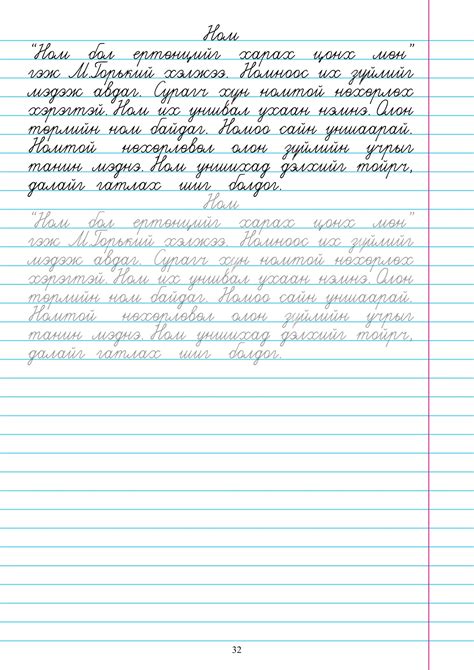 Ном
“Ном бол ертөнцийг харах цонх мөн”
гэж М.Горький хэлжээ. Номноос их зүйлийг
мэдэж авдаг. Сурагч хүн номтой нөхөрлөх
хэрэгтэй. Ном их уншвал ухаан нэмнэ. Олон
төрлийн ном байдаг. Номоо сайн уншаарай.
Номтой нөхөрлөвөл олон зүйлийн учрыг
танин мэднэ. Ном уншихад дэлхийг тойрч,
далайг гатлах шиг болдог.
Ном
“Ном бол ертөнцийг харах цонх мөн”
гэж М.Горький хэлжээ. Номноос их зүйлийг
мэдэж авдаг. Сурагч хүн номтой нөхөрлөх
хэрэгтэй. Ном их уншвал ухаан нэмнэ. Олон
төрлийн ном байдаг. Номоо сайн уншаарай.
Номтой нөхөрлөвөл олон зүйлийн учрыг
танин мэднэ. Ном уншихад дэлхийг тойрч,
далайг гатлах шиг болдог.
32